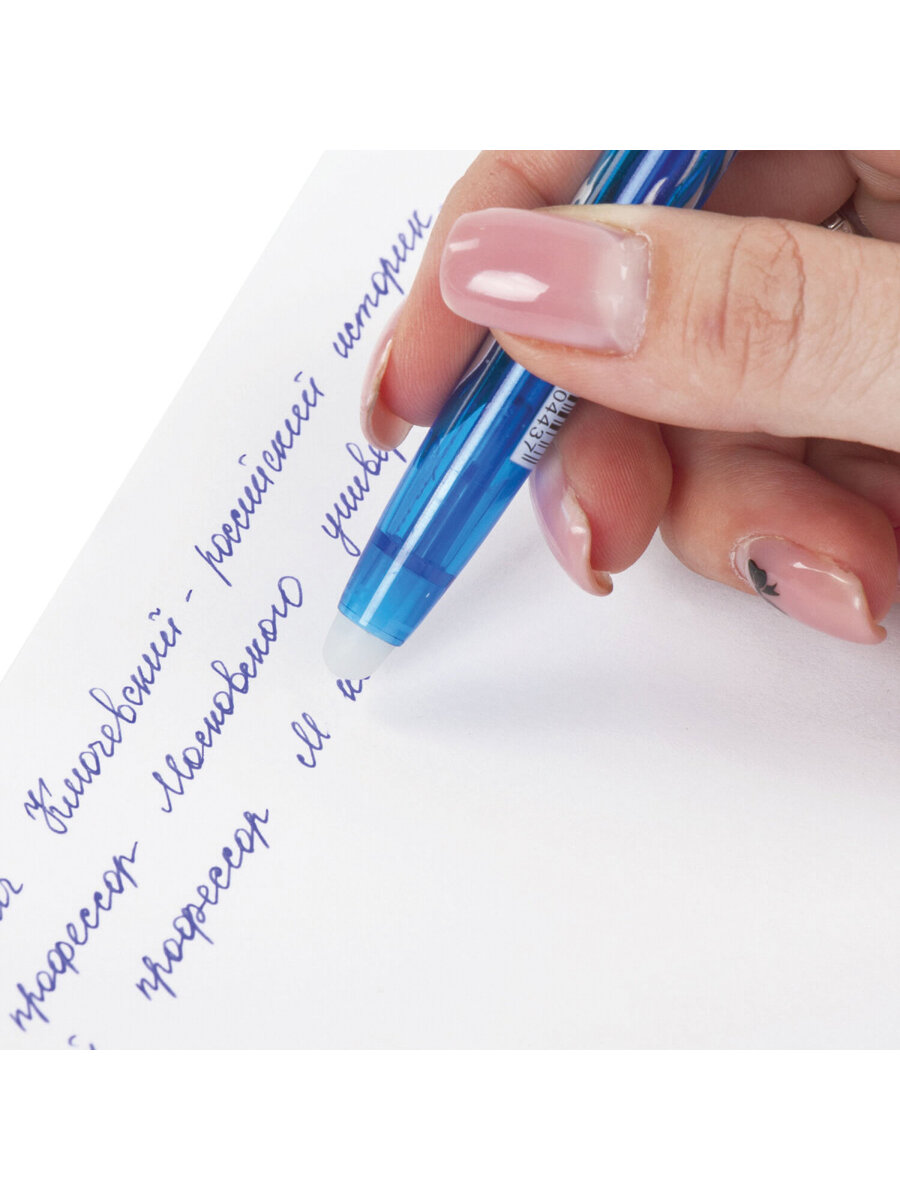 Ключевский - российский историк,
профессор Московского универ
профессор М
04437